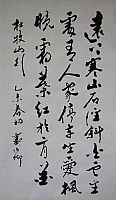 遠上寒山石徑斜白雲生
處有人家停車坐愛楓
晚霜葉紅於二月花
杜牧山行 乙未春初